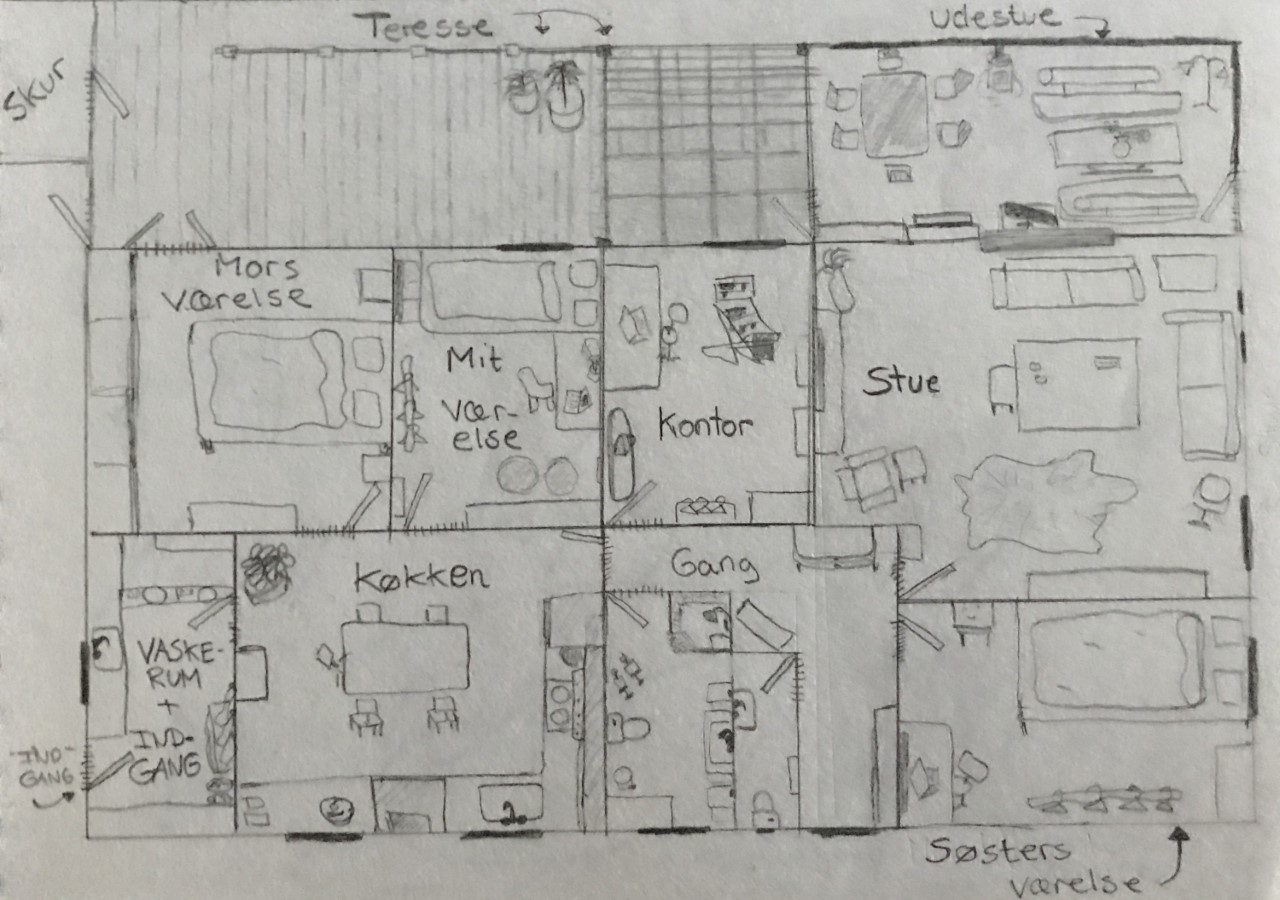 Teresse
Udestue
Skur
Mors
værelse
Mit
vær-
else
Kontor
Stue
Køkken
Gang
VASKE-
RUM
+
IND-
GANG
IND-
GANG
Søsters
værelse